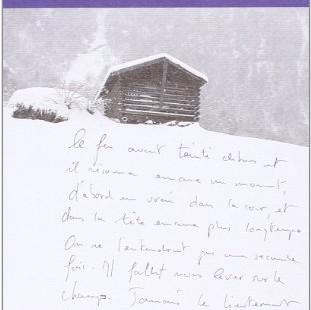 le fer avait tinté dehors et
il résonna encore un moment,
d'abord en vrai dans la cour, et
dans la tête encore plus longtemps
On ne l'entendrait pas une seconde
fois. Il fallut nous lever sur le
champ. Jamais le lieutenant